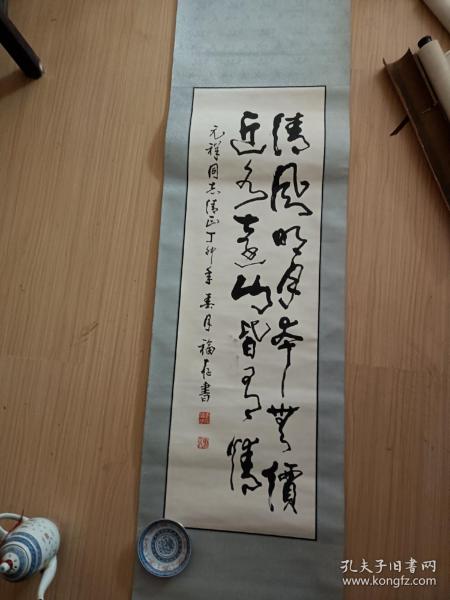 清風明月本無價
近水遠山皆有情
元祥同志清正丁卯年春月福存書
孔夫子旧书网
www.kongfz.com